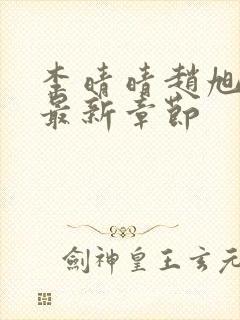 李晴晴趙旭
最新章節
劍神皇王玄元